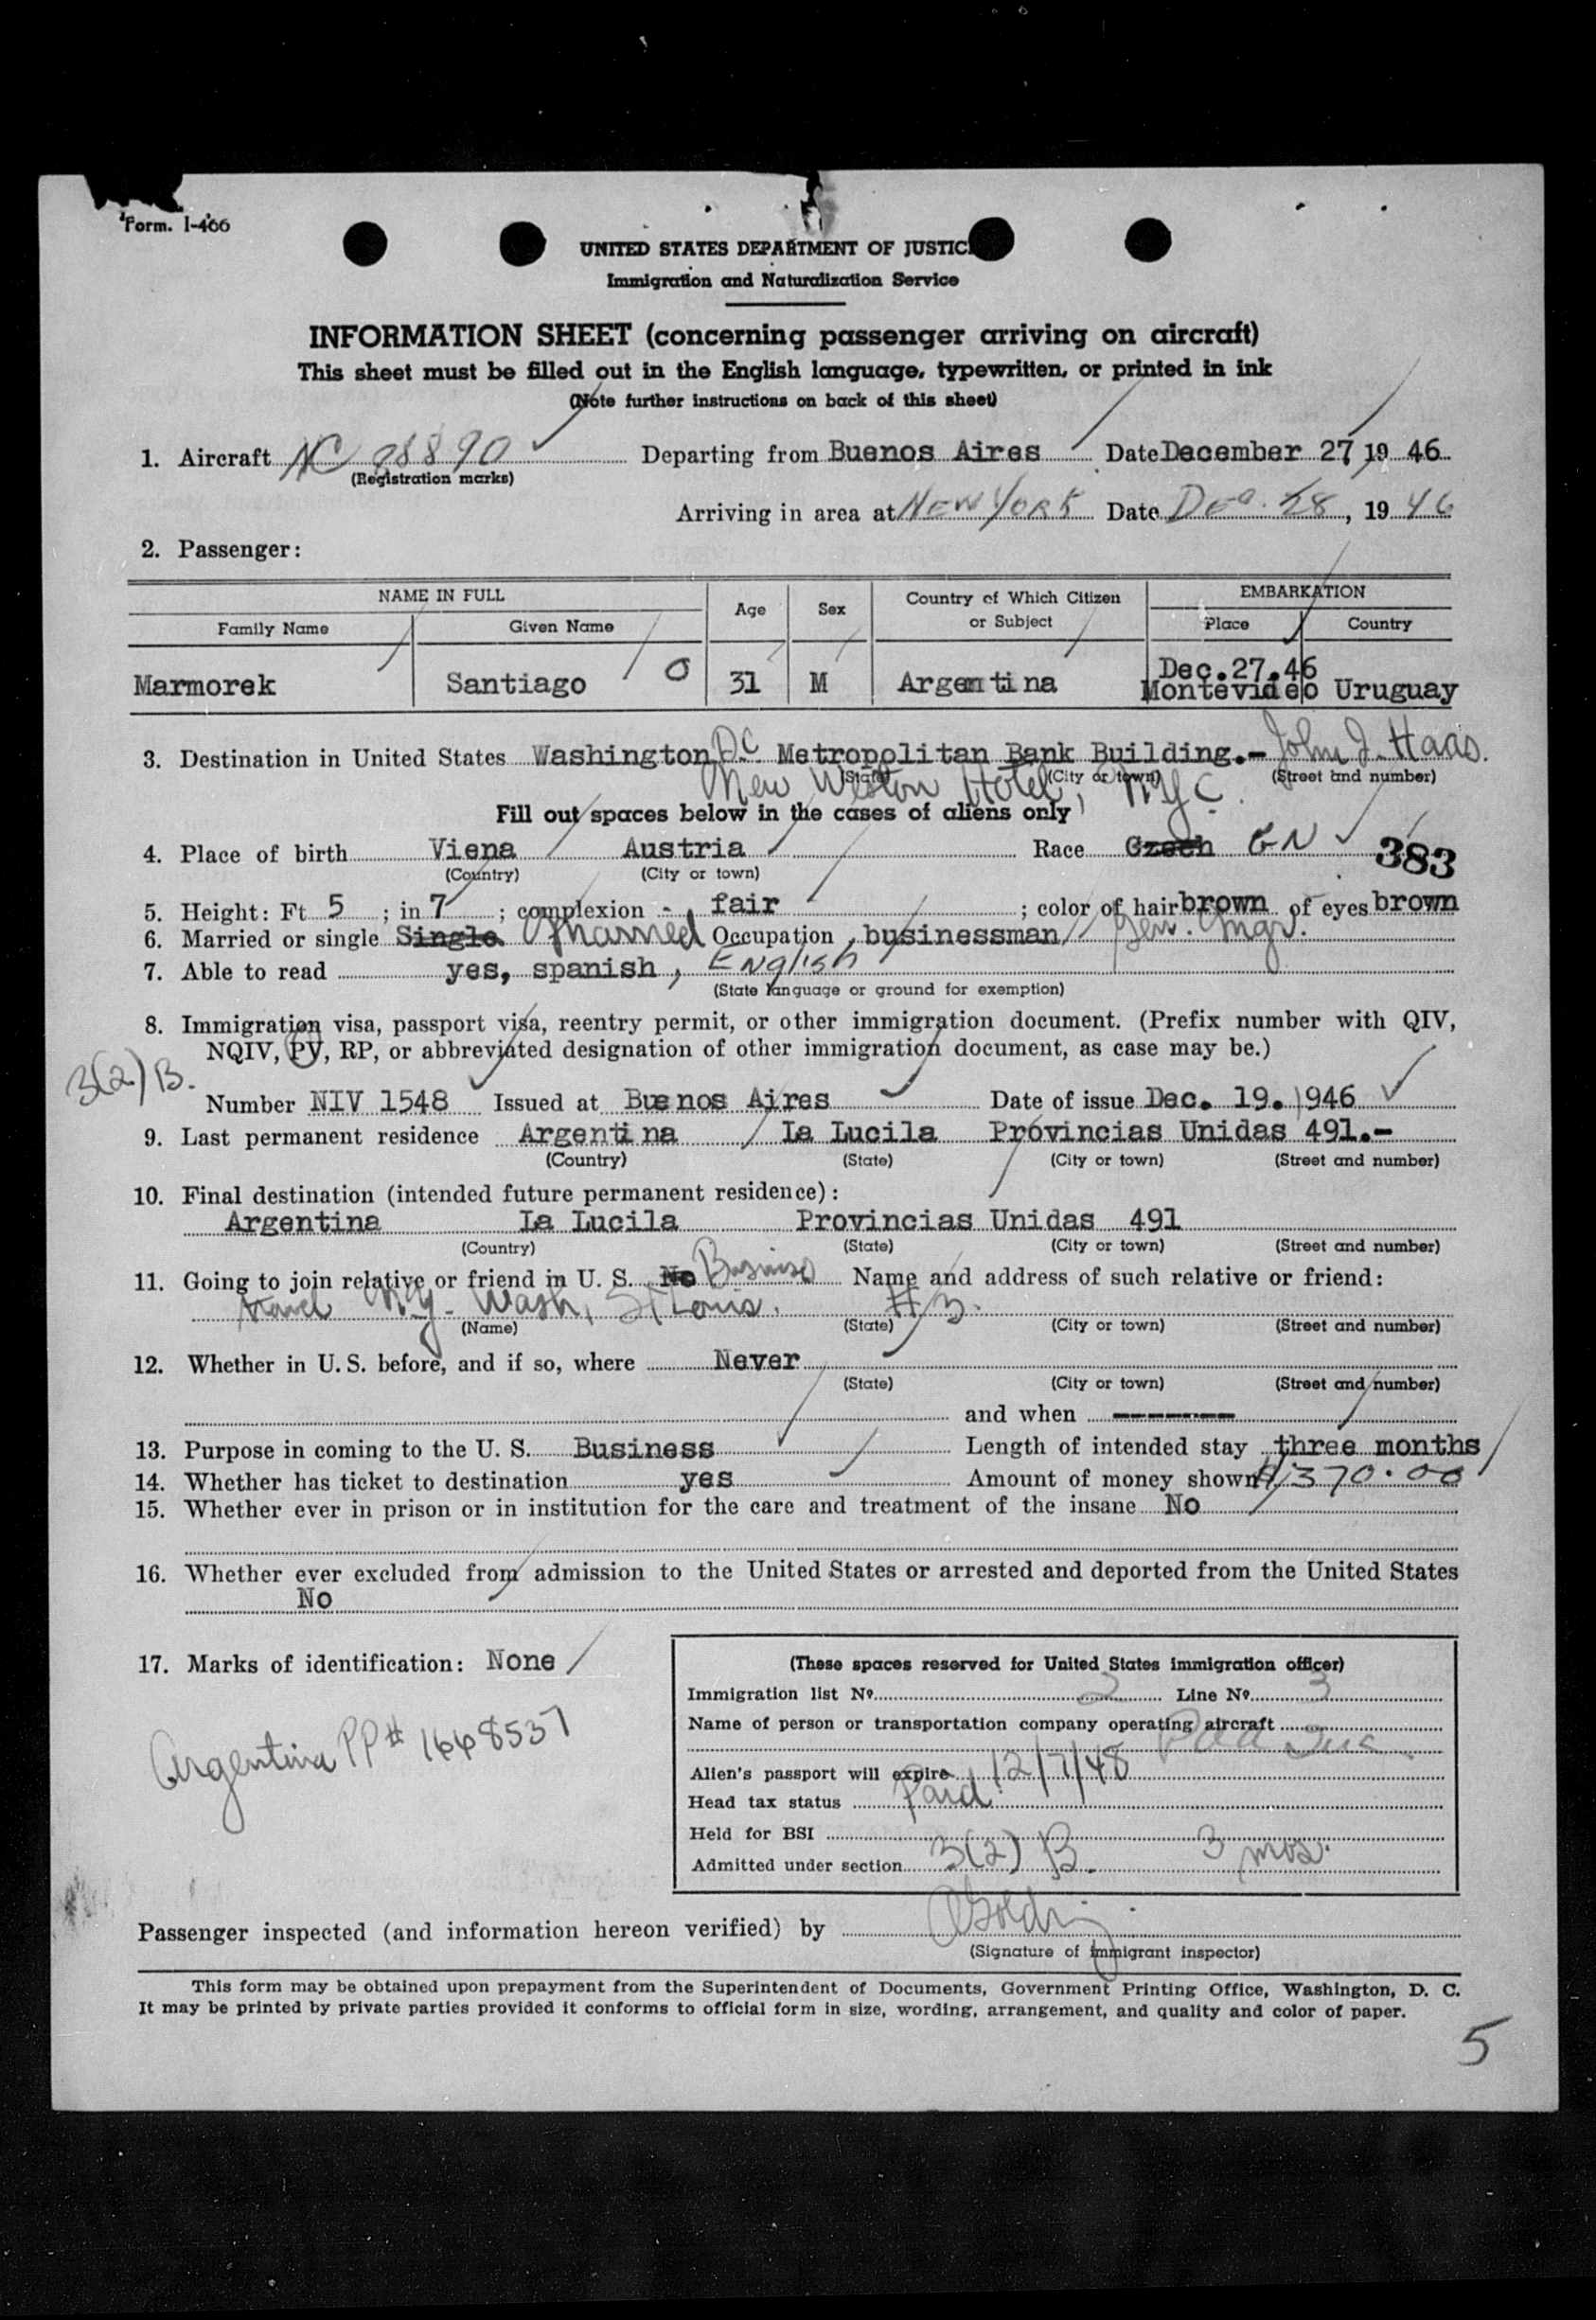 Form. I-466
UNITED STATES DEPARTMENT OF JUSTIC
Immigration and Naturalization Service
INFORMATION SHEET (concerning passenger arriving on aircraft)
This sheet must be filled out in the English language, typewritten, or printed in ink
(Note further instructions on back of this sheet)
1. Aircraft NC 88890 Departing from Buenos Aires Date December 27, 19 46
(Registration marks)
Arriving in area at NEW YORK Date Dec. 28, 19 46
2. Passenger:
NAME IN FULL Age Sex Country of Which Citizen or Subject EMBARKATION
Family Name Given Name Place Country
Dec.27.46
Marmorek Santiago O 31 M Argentina Montevideo Uruguay
3. Destination in United States Washington DC Metropolitan Bank Building.- John J. Haas.
(State) (City or town) (Street and number)
New Weston Hotel, NYC.
Fill out spaces below in the cases of aliens only
4. Place of birth Viena Austria Race Czech GN 383
(Country) (City or town)
5. Height: Ft 5 ; in 7 ; complexion - fair ; color of hair brown of eyes brown
6. Married or single Single Married Occupation businessman Gen. Mgr.
7. Able to read yes, spanish, English
(State language or ground for exemption)
8. Immigration visa, passport visa, reentry permit, or other immigration document. (Prefix number with QIV,
NQIV, PV, RP, or abbreviated designation of other immigration document, as case may be.)
3(2) B.
Number NIV 1548 Issued at Buenos Aires Date of issue Dec. 19. 1946
9. Last permanent residence Argentina La Lucila Provincias Unidas 491.-
(Country) (State) (City or town) (Street and number)
10. Final destination (intended future permanent residence):
Argentina La Lucila Provincias Unidas 491
(Country) (State) (City or town) (Street and number)
11. Going to join relative or friend in U. S. No Business Name and address of such relative or friend:
Travel N.Y. Wash, St Louis. #3.
(Name) (State) (City or town) (Street and number)
12. Whether in U. S. before, and if so, where Never
(State) (City or town) (Street and number)
and when -------
13. Purpose in coming to the U. S. Business Length of intended stay three months
14. Whether has ticket to destination yes Amount of money shown 370.00
15. Whether ever in prison or in institution for the care and treatment of the insane No
16. Whether ever excluded from admission to the United States or arrested and deported from the United States
No
17. Marks of identification: None
Argentina PP# 1668537
(These spaces reserved for United States immigration officer)
Immigration list No. 2 Line No. 3
Name of person or transportation company operating aircraft
Alien's passport will expire 12/7/48
Head tax status Paid
Held for BSI
Admitted under section 3(2) B. 3 mos.
Passenger inspected (and information hereon verified) by
(Signature of immigrant inspector)
This form may be obtained upon prepayment from the Superintendent of Documents, Government Printing Office, Washington, D. C.
It may be printed by private parties provided it conforms to official form in size, wording, arrangement, and quality and color of paper.
5